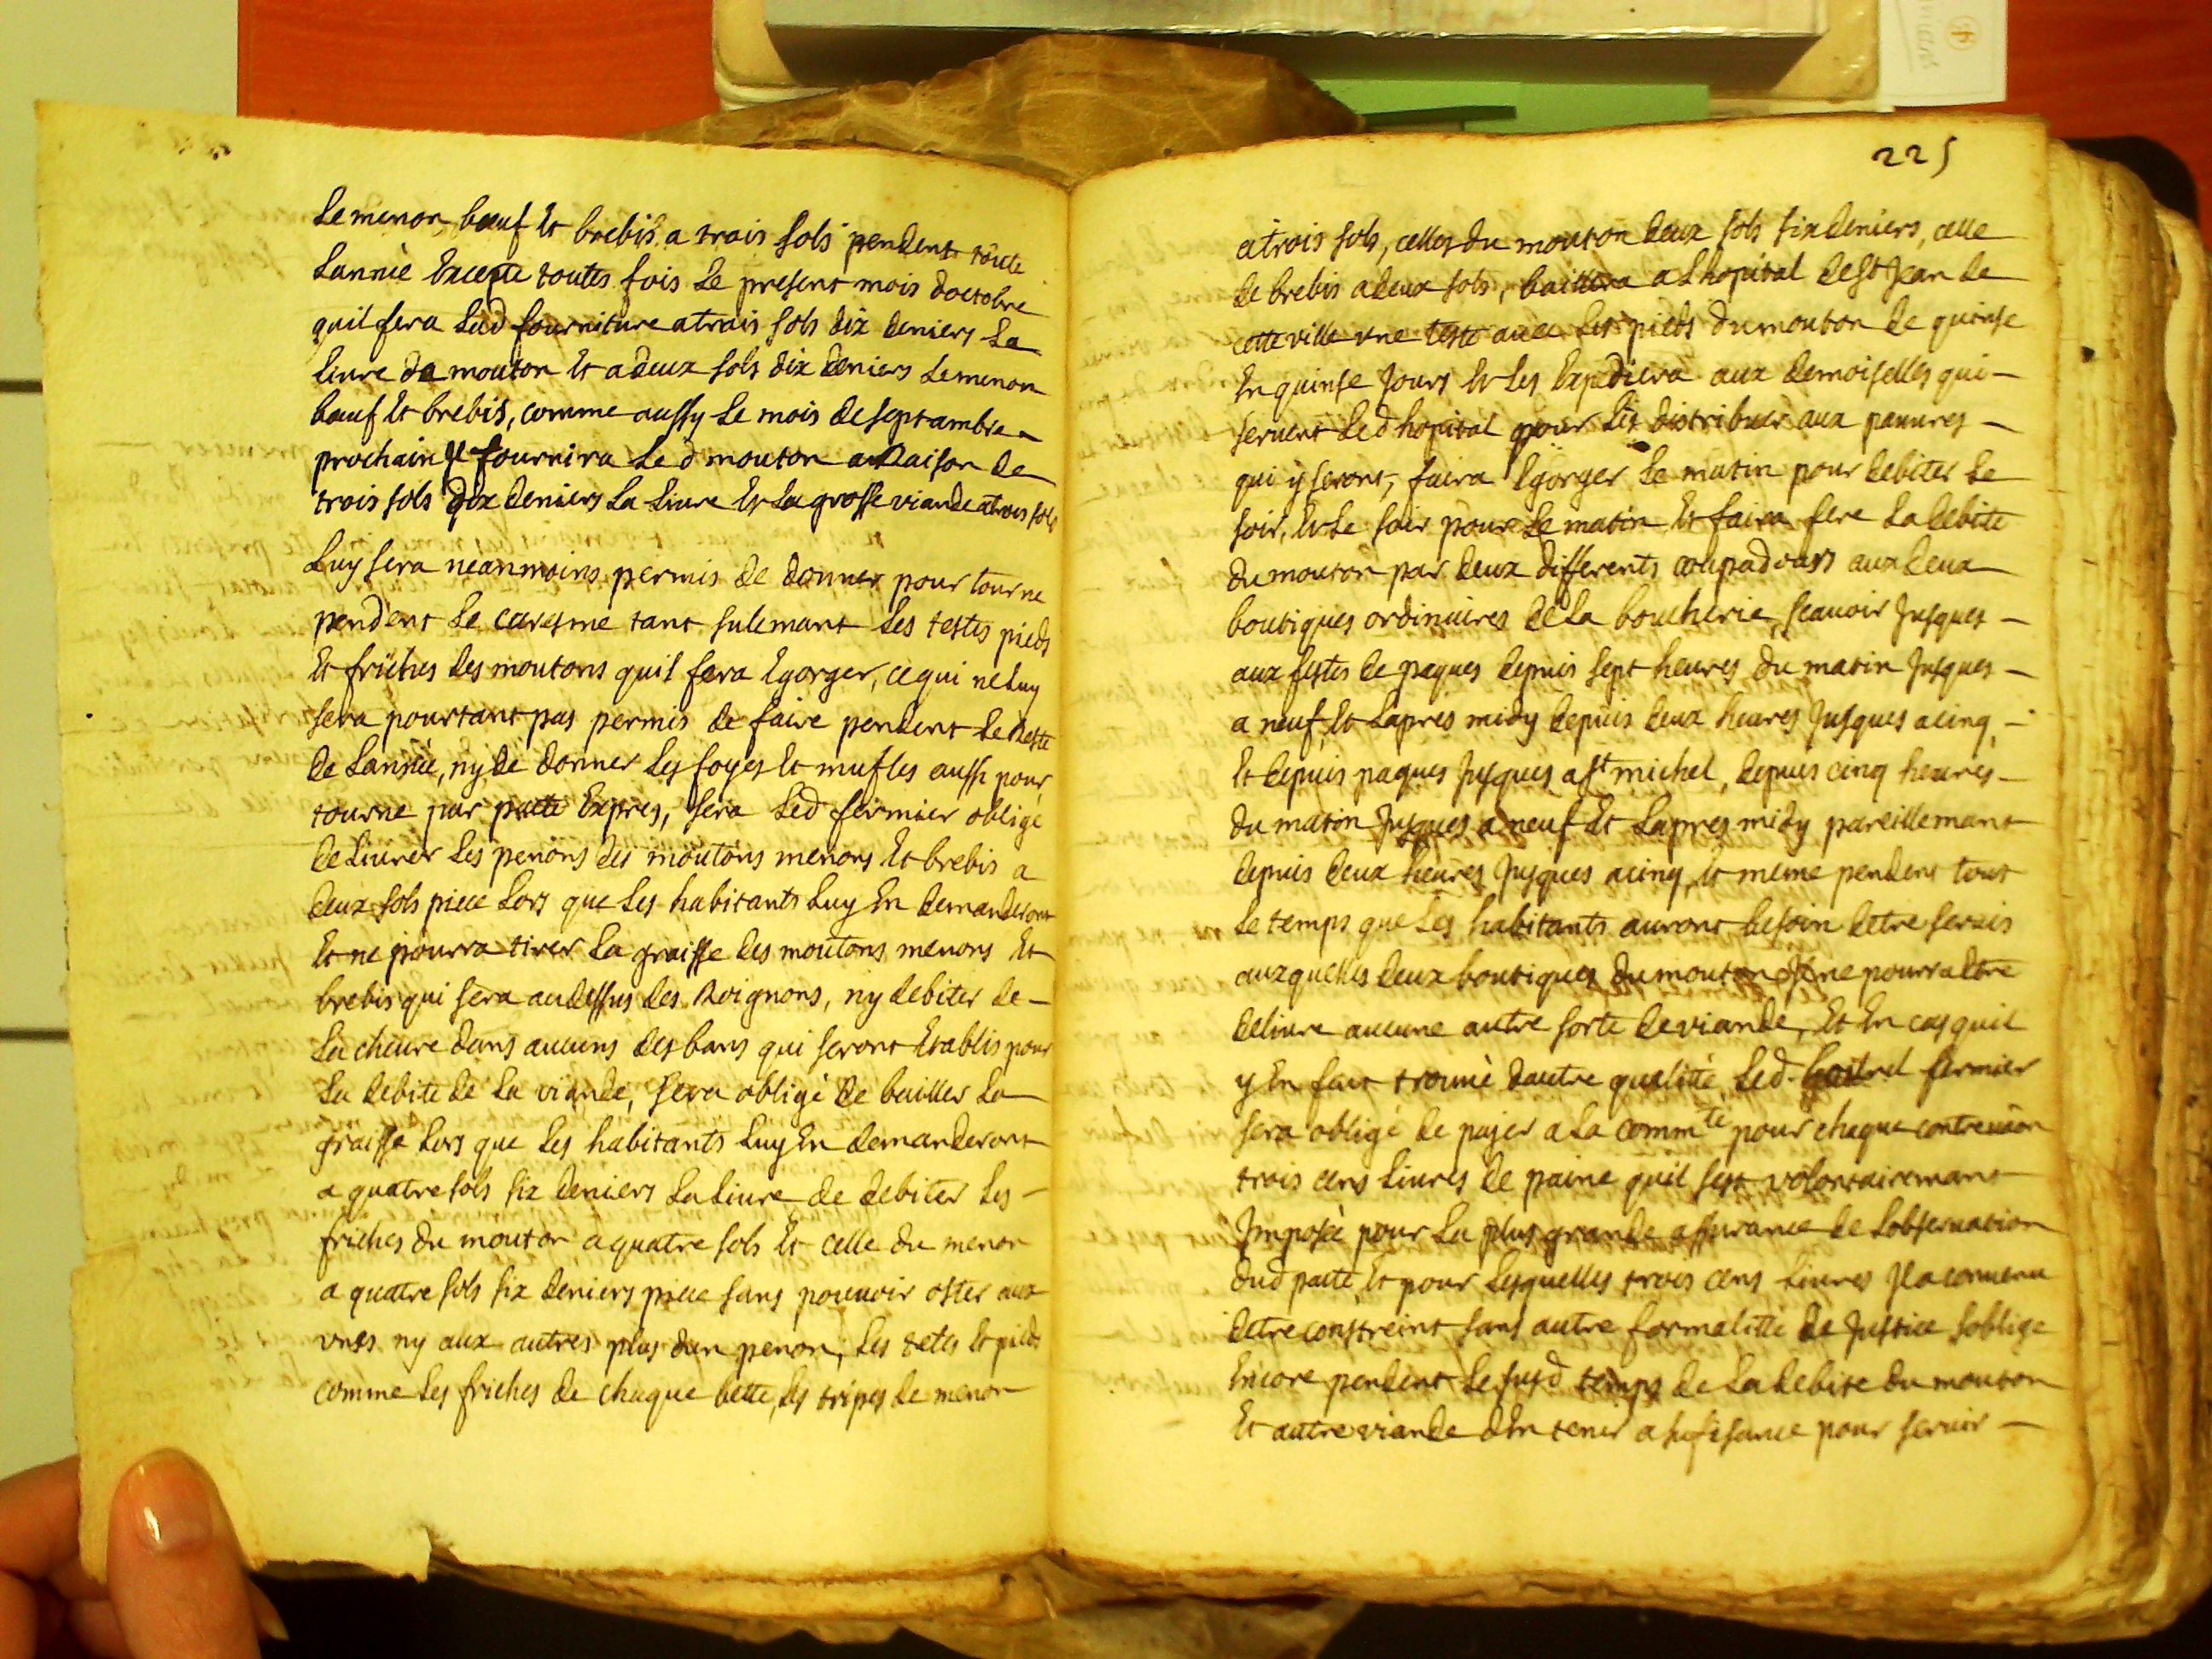 Le menon bœuf et brebis a trois sols pendent toute
Lannèe Excepte toutes fois Le present mois doctobre
quil fera Lad fourniture a trois sols dix deniers La
Livre de mouton et a deux sols dix deniers Le menon
bœuf et brebis, comme aussy Le mois de septambre
prochain Il fournira Led mouton a Raison de
trois sols dix deniers La Livre et La grosse viande a trois sols
Luy sera neanmoins permis de donner pour tourne
pendent Le caresme tant sulemant Les testes pieds
Et friches des moutons quil fera Egorger, ce qui ne Luy
sera pourtant pas permis de faire pendent Le Reste
de Lannèe, ny de donner Les foyes et mufles aussi pour
tourne par pacte Expres, sera Led fermier obligé
de Livrer Les penons des moutons menons Et brebis a
deux sols piece Lors que Les habitants Luy En demanderont
Et ne pourra tirer La graisse des moutons menons Et
brebis qui sera au dessus des Roignons, ny debiter de
La chevre dans aucuns des bans qui seront Establis pour
La debite de La viande, sera obligé de bailler La
graisse Lors que Les habitants Luy En demanderont
a quatre sols six deniers La Livre de debiter Les
friches du mouton a quatre sols Et celle du menon
a quatre sols six deniers piece sans pouvoir oster aux
unes ny aux autres plus dun penon, Les tetes Et pieds
comme Les friches de chaque bette, Les tripes de menon
225
a trois sols, celles du mouton deux sols six deniers, celle
de brebis a deux sols, baillera a Lhopital de St Jean de
cette ville une teste avec Les pieds du mouton de quinse
En quinse Jours Et Les Expediera aux demoiselles qui
servent Led hopital pour Les distribuer aux pauvres
qui y seront, faira Egorger Le matin pour debiter Le
soir, Et Le soir pour Le matin Et faira fere La debite
du mouton par deux differents coupadours aux deux
boutiques ordinaires de La boucherie, scavoir Jusques
aux festes de paques depuis sept heures du matin Jusques
a neuf, Et Lapres midy depuis deux heures Jusques a cinq,
Et depuis paques Jusques a St michel, depuis cinq heures
du matin Jusques a neuf Et Lapres midy pareillemant
depuis deux heures Jusques a cinq, Et meme pendent tout
Le temps que Les habitants auront besoin detre servis
auxquelles deux boutiques du mouton Il ne pourra Etre
delivre aucune autre sorte de viande, Et En cas quil
y En fut trouvè dautre qualité Led fermier
sera obligé de payer a La commté pour chaque contrevãon
trois cens Livres de paine quil sest volontairemant
Imposèe pour La plus grande assurance de Lobservation
dud pacte, Et pour Lesquelles trois cens Livres Il a convenu
detre constreint sans autre formalitte de Justice soblige
Encore pendent Le susd temps de La debite du mouton
Et autre viande dEn tenir a sufisance pour servir